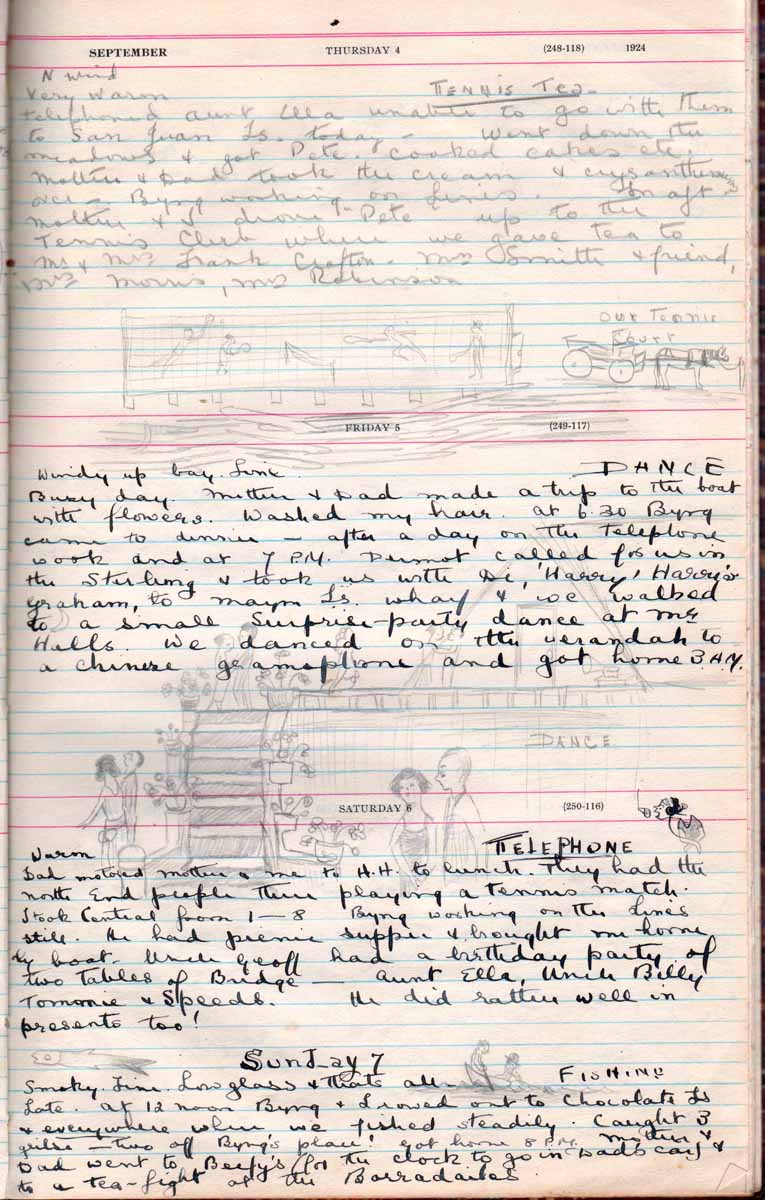 SEPTEMBER THURSDAY 4 (248-118) 1924
N wind
Very Warm TENNIS TEA
telephoned aunt Ella unable to go with them
to San Juan Is. today - Went down the
meadows & got Pete. Cooked cakes etc.
Mother & Dad took the cream & crysanthemums
over - Byng working on lines. In aft
mother & I drove Pete up to the
Tennis Club where we gave tea to
Mr & Mrs Frank Crofton - Mrs Smith & friend,
Mrs Morris, Mrs Robinson
OUR TENNIS
COURT
FRIDAY 5 (249-117)
Windy up bay. Fine. DANCE
Busy day. Mother & Dad made a trip to the boat
with flowers. Washed my hair. at 6.30 Byng
came to dinner - after a day on the telephone
work and at 7 P.M. Dermot called for us in
the Sterling & took us with Di, 'Harry' Harry's
Graham, to Mayne Is. wharf & we walked
to a small Surprise-party dance at Mrs
Halls. We danced on the verandah to
a chinese gramaphone and got home 3 A.M.
DANCE
SATURDAY 6 (250-116)
Warm TELEPHONE
Dad motored mother & me to H.H. to lunch. They had the
north End people there playing a tennis match.
Took Central from 1 - 8 Byng working on the lines
still. He had picnic supper & brought me home
by boat. Uncle Geoff had a birthday party of
two Tables of Bridge - aunt Ella, Uncle Billy
Tommie & Speeds. He did rather well in
presents too!
SUNDAY 7
Smoky. Fine. Low glass & thats all FISHING
Late. at 12 noon Byng & I rowed out to Chocolate Is
& everywhere where we fished steadily. Caught 3
grilse - two off Byng's place! got home 8 P.M. Mother &
Dad went to Beefy's for the clock to go in Dads car &
to a tea-fight at the Borradailes